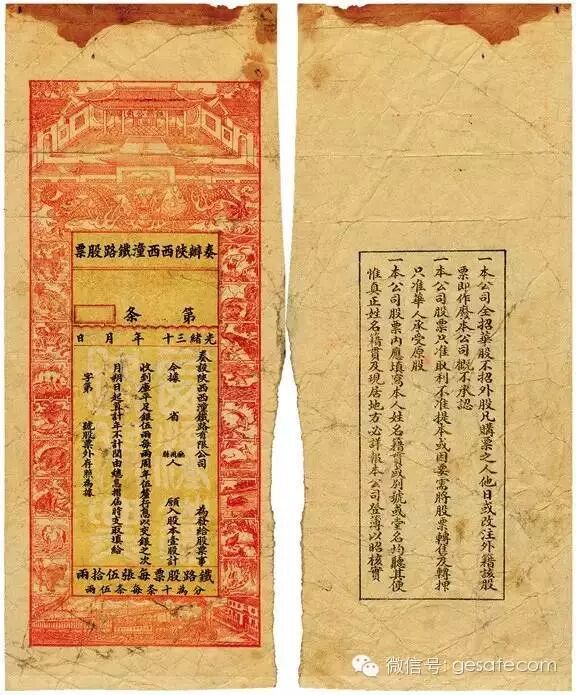 奏辦陝西西潼鐵路股票
第 條
光緒三十 年 月 日
奏設陝西西潼鐵路有限公司 為發給股票事
今據 省 縣 人 願入股本壹股計
收到庫平足銀伍兩每兩周年伍釐行息以交銀之次
月朔日起算計年不計閏由總息摺屆時支取填給
字第 號股票外存照為據
鐵路股票每張伍拾兩
分為十条每条伍兩
一本公司全招華股不招外股凡購票之人他日或改注外籍該股
票即作廢本公司概不承認
一本公司股票只准取利不准提本或因要需將股票轉售及轉押
只准華人承受原股
一本公司股票內應填寫本人姓名籍貫或別號或堂名均聽其便
惟真正姓名籍貫及現居地方必詳報本公司登簿以昭核實
微信号: gesafecom